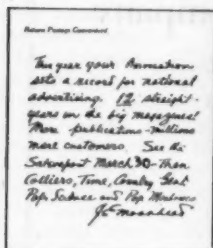 Return Postage Guaranteed
This year your Association
sets a record for national
advertising. 12 straight
years in the big magazines!
More publications - millions
more customers. See the
Satevepost - March 30 - Then
Colliers, Time, Country Gent
Pop. Science and Pop Mechanics